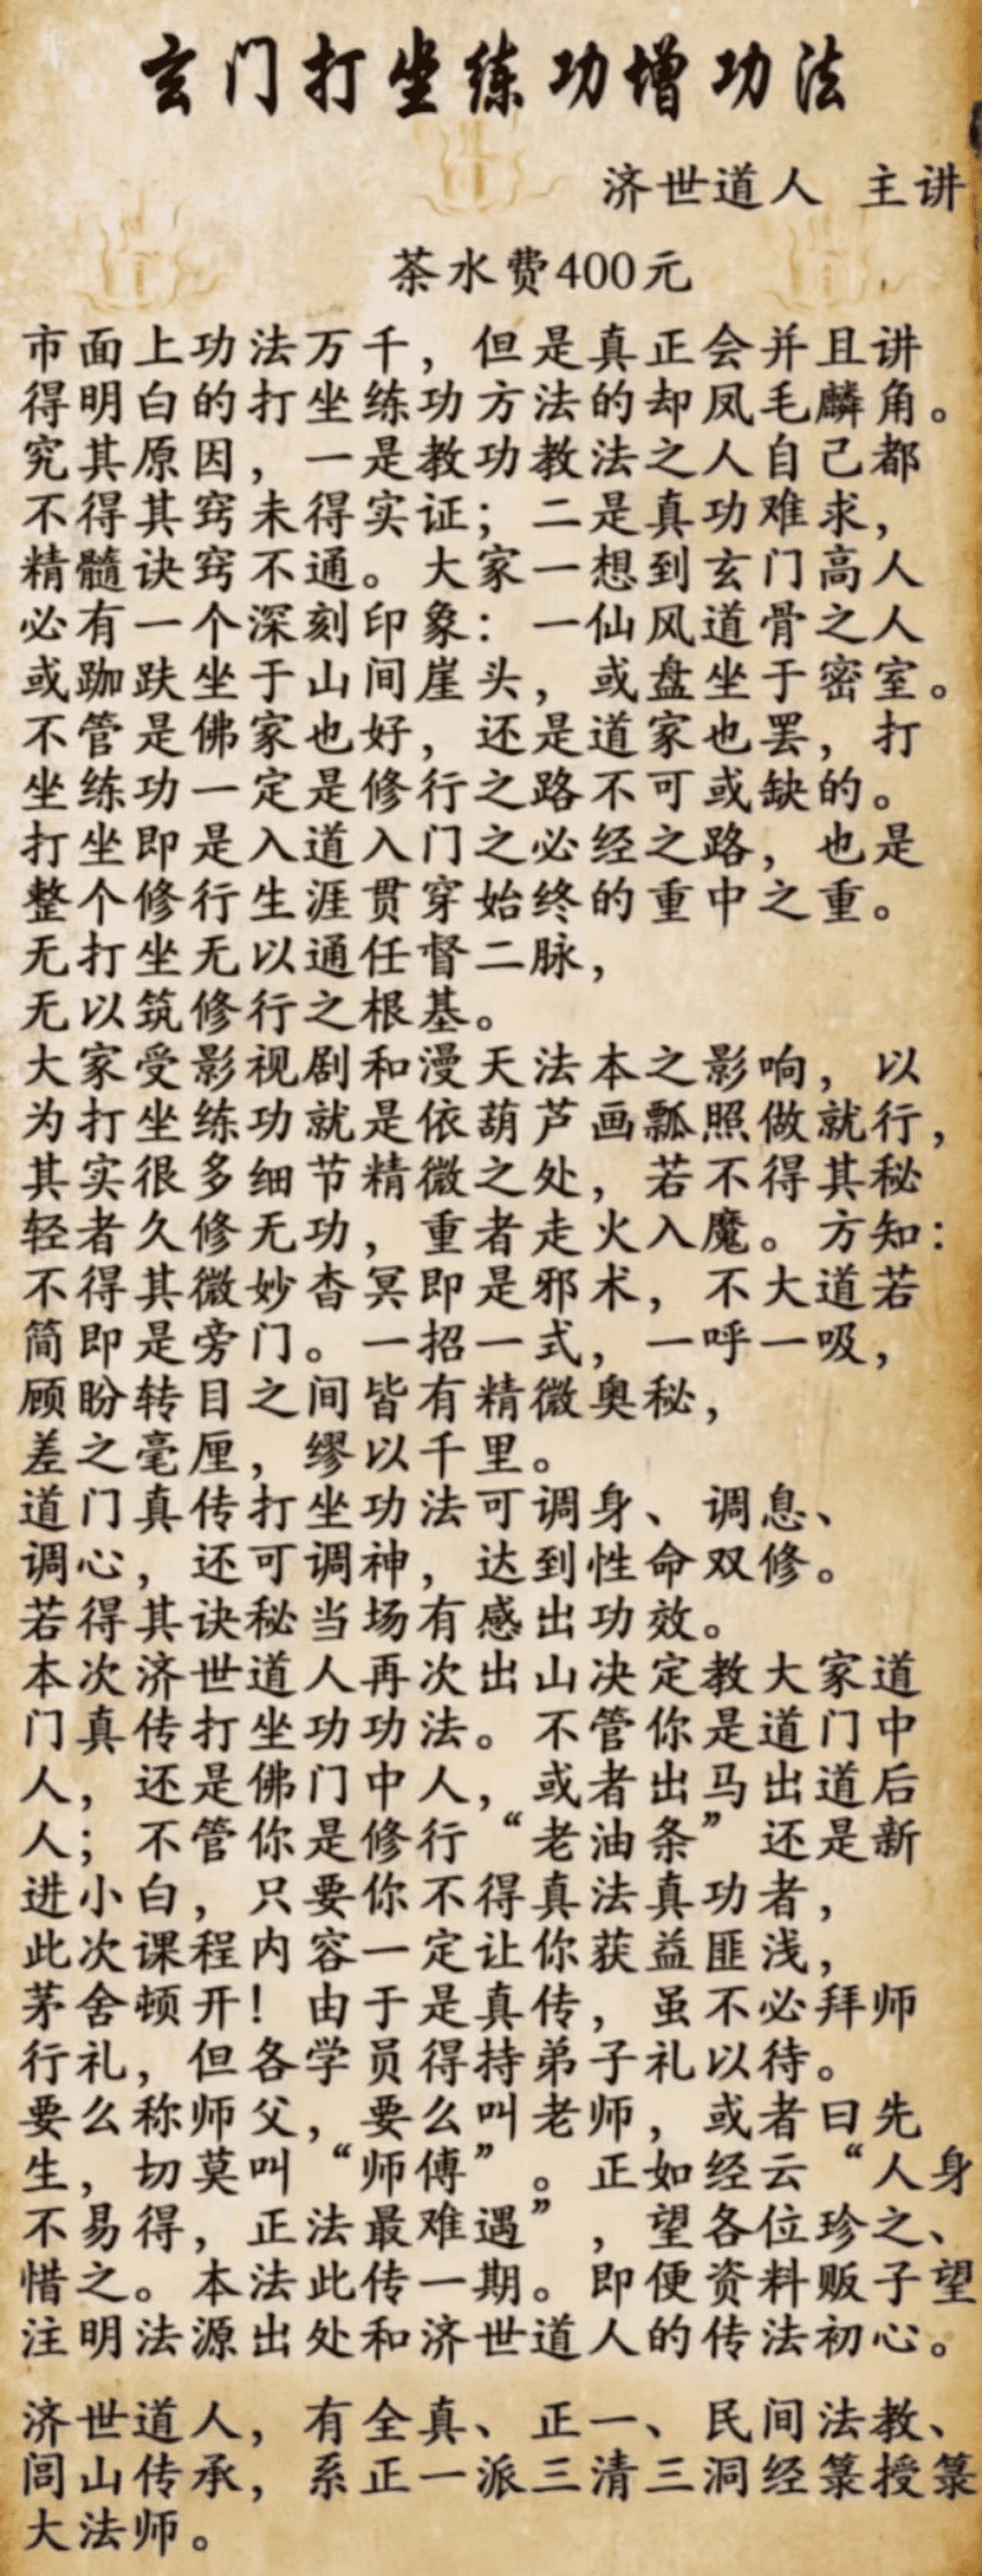 玄门打坐练功增功法
济世道人 主讲
茶水费400元
市面上功法万千，但是真正会并且讲
得明白的打坐练功方法的却凤毛麟角。
究其原因，一是教功教法之人自己都
不得其窍未得实证；二是真功难求，
精髓诀窍不通。大家一想到玄门高人
必有一个深刻印象：一仙风道骨之人
或跏趺坐于山间崖头，或盘坐于密室。
不管是佛家也好，还是道家也罢，打
坐练功一定是修行之路不可或缺的。
打坐即是入道入门之必经之路，也是
整个修行生涯贯穿始终的重中之重。
无打坐无以通任督二脉，
无以筑修行之根基。
大家受影视剧和漫天法本之影响，以
为打坐练功就是依葫芦画瓢照做就行，
其实很多细节精微之处，若不得其秘
轻者久修无功，重者走火入魔。方知：
不得其微妙杳冥即是邪术，不大道若
简即是旁门。一招一式，一呼一吸，
顾盼转目之间皆有精微奥秘，
差之毫厘，缪以千里。
道门真传打坐功法可调身、调息、
调心，还可调神，达到性命双修。
若得其诀秘当场有感出功效。
本次济世道人再次出山决定教大家道
门真传打坐功功法。不管你是道门中
人，还是佛门中人，或者出马出道后
人；不管你是修行“老油条”还是新
进小白，只要你不得真法真功者，
此次课程内容一定让你获益匪浅，
茅舍顿开！由于是真传，虽不必拜师
行礼，但各学员得持弟子礼以待。
要么称师父，要么叫老师，或者曰先
生，切莫叫“师傅”。正如经云“人身
不易得，正法最难遇”，望各位珍之、
惜之。本法此传一期。即便资料贩子望
注明法源出处和济世道人的传法初心。
济世道人，有全真、正一、民间法教、
闾山传承，系正一派三清三洞经箓授箓
大法师。